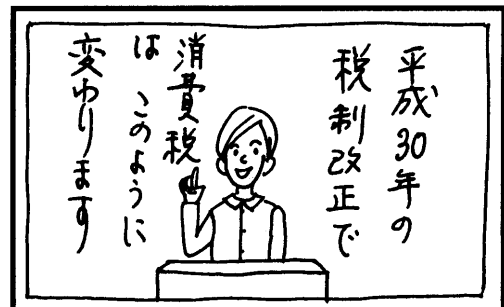 平成30年の
税制改正で
消費税
は このように
変わります